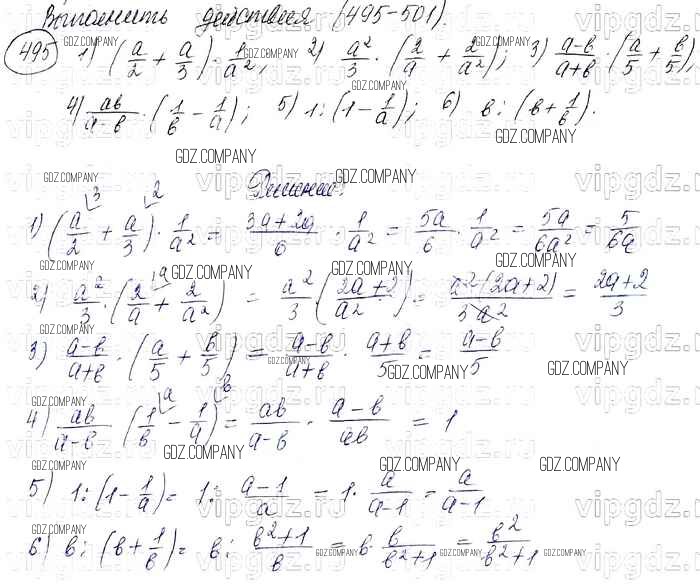 Выполнить действия (495-501).
495 1) (a/2 + a/3) · 1/a²; 2) a²/3 · (2/a + 2/a²); 3) (a-b)/(a+b) · (a/5 + b/5);
4) ab/(a-b) · (1/b - 1/a); 5) 1 : (1 - 1/a); 6) b : (b + 1/b).
Решение:
1) (a/2 + a/3) · 1/a² = (3a+2a)/6 · 1/a² = 5a/6 · 1/a² = 5a/6a² = 5/6a
2) a²/3 · (2/a + 2/a²) = a²/3 (2a+2)/a² = a²(2a+2)/3a² = (2a+2)/3
3) (a-b)/(a+b) · (a/5 + b/5) = (a-b)/(a+b) · (a+b)/5 = (a-b)/5
4) ab/(a-b) (1/b - 1/a) = ab/(a-b) · (a-b)/ab = 1
5) 1 : (1 - 1/a) = 1 : (a-1)/a = 1 · a/(a-1) = a/(a-1)
6) b : (b + 1/b) = b : (b²+1)/b = b · b/(b²+1) = b²/(b²+1)
GDZ.COMPANY
vipgdz.ru